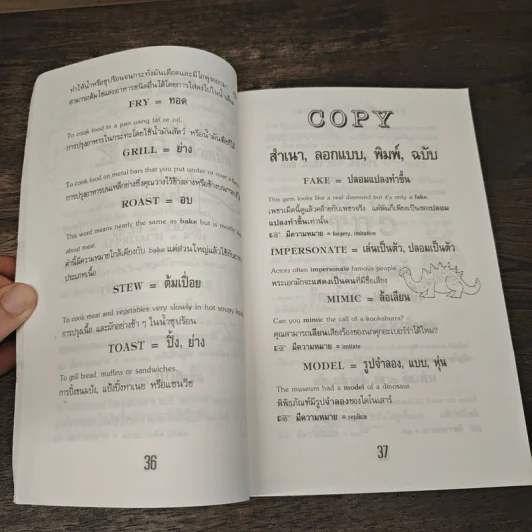 ทำให้น้ำหรือซุปร้อนจนกระทั่งมันเดือดและมีไอพุ่งออกมา
สามารถต้มไข่และอาหารชนิดอื่นได้โดยการใส่ลงไปในน้ำเดือด
FRY = ทอด
To cook food in a pan using fat or oil.
การปรุงอาหารในกระทะโดยใช้น้ำมันสัตว์ หรือน้ำมันพืชก็ได้
GRILL = ย่าง
To cook food on metal bars that you put under or over a
การปรุงอาหารบนเหล็กย่างซึ่งคุณวางไว้ข้างล่างหรือข้างบน
ROAST = อบ
This word means nearly the same as bake but is mostly
about meat.
คำนี้มีความหมายใกล้เคียงกับ bake แต่ส่วนใหญ่แล้วใช้กับ
ประเภทเนื้อ
STEW = ต้มเปื่อย
To cook meat and vegetables very slowly in hot soupy
การปรุงเนื้อ และผักอย่างช้า ๆ ในน้ำซุปร้อน
TOAST = ปิ้ง, ย่าง
To grill bread, muffins or sandwiches.
การปิ้งขนมปัง, แป้งปิ้งทาเนย หรือแซนวิช
36
COPY
สำเนา, ลอกแบบ, พิมพ์, ฉบับ
FAKE = ปลอมแปลงทำขึ้น
This gem looks like a real diamond but it's only a fake.
เพชรเม็ดนี้ดูแล้วคล้ายกับเพชรจริง แต่มันก็เพียงเป็นของปลอม
แปลงทำขึ้นเท่านั้น
มีความหมาย = forgery, imitation
IMPERSONATE = เล่นเป็นตัว, ปลอมเป็นตัว
Actors often impersonate famous people
พระเอกมักจะแสดงเป็นคนที่มีชื่อเสียง
MIMIC = ล้อเลียน
Can you mimic the call of a kookaburra?
คุณสามารถเลียนเสียงร้องของนกคูกะเบอร์ร่าได้ไหม?
มีความหมาย = imitate
MODEL = รูปจำลอง, แบบ, หุ่น
The museum had a model of a dinosaur.
พิพิธภัณฑ์มีรูปจำลองของไดโนเสาร์
มีความหมาย = replica
37